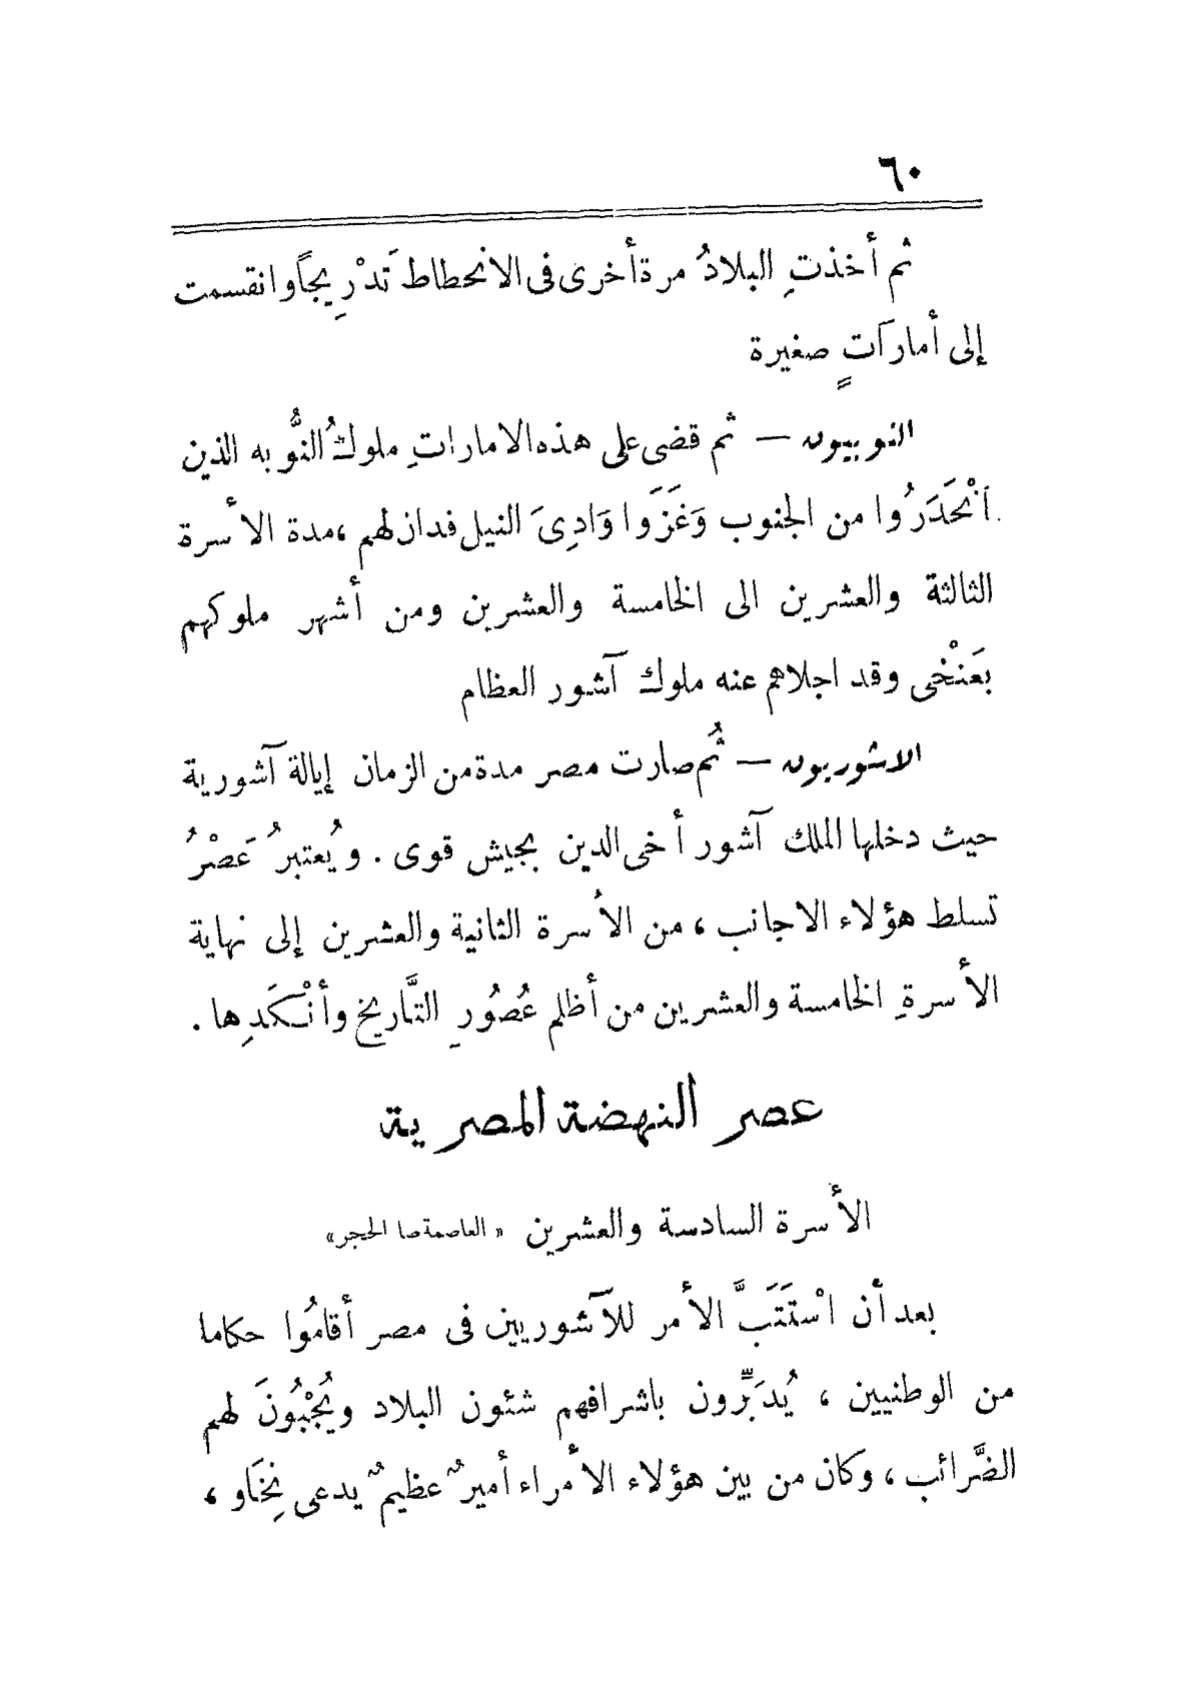 ٦٠
ثم أخذتِ البلادُ مرة أخرى فى الانحطاط تَدْرِيجاً وانقسمت
إلى أماراتٍ صغيرة
النوبيون — ثم قضى على هذه الاماراتِ ملوكُ النُّوبه الذين
انْحَدَرُوا من الجنوب وَغَزَوا وَادِىَ النيل فدان لهم ، مدة الأسرة
الثالثة والعشرين الى الخامسة والعشرين ومن أشهر ملوكهم
بَعَنْخى وقد اجلاهم عنه ملوك آشور العظام
الاشوريون — ثُم صارت مصر مدة من الزمان إيالة آشورية
حيث دخلها الملك آشور أخى الدين بجيش قوى . ويُعتبرُ عَصْرُ
تسلط هؤلاء الاجانب ، من الأسرة الثانية والعشرين إلى نهاية
الأسرةِ الخامسة والعشرين من أظلم عُصُورِ التَّاريخ وأنْكَدِها .
عصر النهضة المصرية
الأسرة السادسة والعشرين « العاصمة صا الحيجر»
بعد أن اسْتَتَبَّ الأمر للآشوريين فى مصر أقامُوا حكاما
من الوطنيين ، يُدَبِّرون باشرافهم شئون البلاد ويُجْبُونَ لهم
الضَّرائب ، وكان من بين هؤلاء الأمراء أميرٌ عظيمٌ يدعى نِخَاو ،